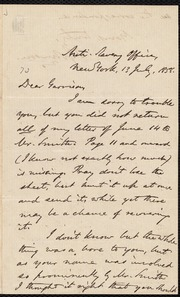 Anti-Slavery Office,
New York, 13 July, 1858.
Dear Garrison,
I am sorry to trouble
you, but you did not return
all of my letter of June 14 to
Mr. Smith. Page 11 and onward
(I know not exactly how much)
is missing. Pray, don't lose the
sheets, but hunt it up at once
and send it, while yet there
may be a chance of recovering
it.
I don't know but the whole
thing was a bore to you, but
as your name was involved
so prominently by Mr. Smith
I thought it right that you should